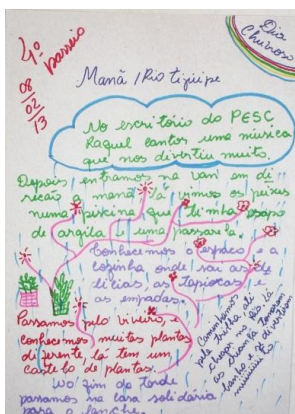 1º passeio
08/02/13
Dia
Chuvoso
Manã / Rio Tijuípe
No escritório do PESC
Raquel cantos uma música
que nos divertiu muito.
Depois entramos na van em di
reção a manã lá vimos os peixes
numa piscina que tinha
de argila e uma passarela.
Conhecemos o espaço e a
cozinha onde sai as de
lícias, as tapiocas e
as empadas.
Passamos pelo viveiro, e
conhecemos muitas plantas
diferente lá tem um
castelo de plantas.
Caminhamos
pela trilha até
chegar no rio lá
as crianças tomaram
banho e se divertiram
muuuuito
No fim da tarde
passamos na casa solidária
para o lanche.